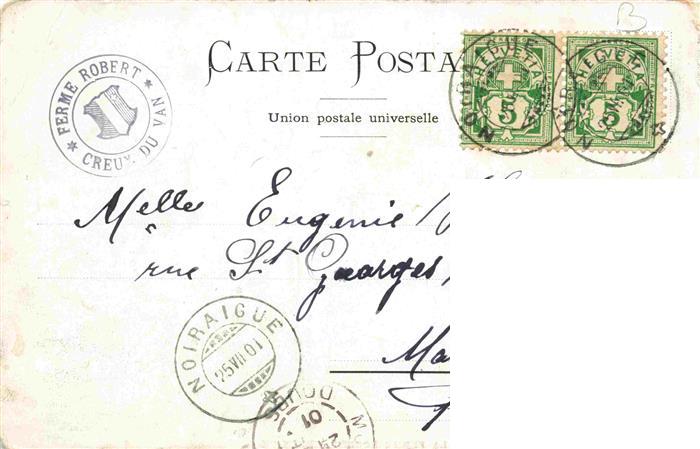 B
CARTE POSTA
Union postale universelle
FERME ROBERT
CREUX DU VAN
HELVETIA
5
HELVETIA
5
Melle Eugenie
rue St Georges
Ma
NOIRAIGUE
25 VII 01
DOUBS
01